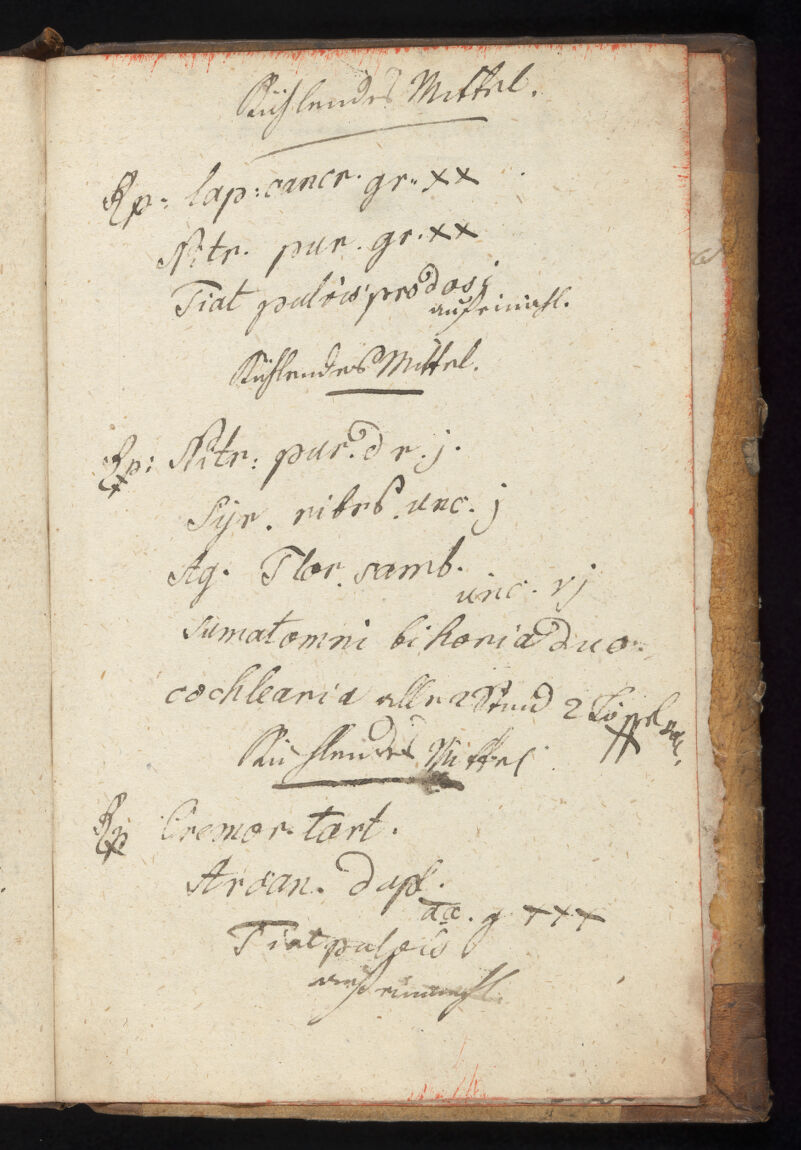 Kühlendes Mittel.
Rp: lap: cancr. gr. xx
Nitr. pur. gr. xx
Fiat pulvis pro dosi
auf einmahl.
Kühlendes Mittel.
Rp: Nitr: pur. dr. j.
Syr. ribes. unc. j
Aq. Flor. samb.
unc. vj
sumat omni bihoria duo
cochlearia alle 2 Stund 2 Löffel
Kühlendes Mittel
Rp Cremor tart.
Arcan. dupl.
aa. g xxx
Fiat pulvis
auf einmahl